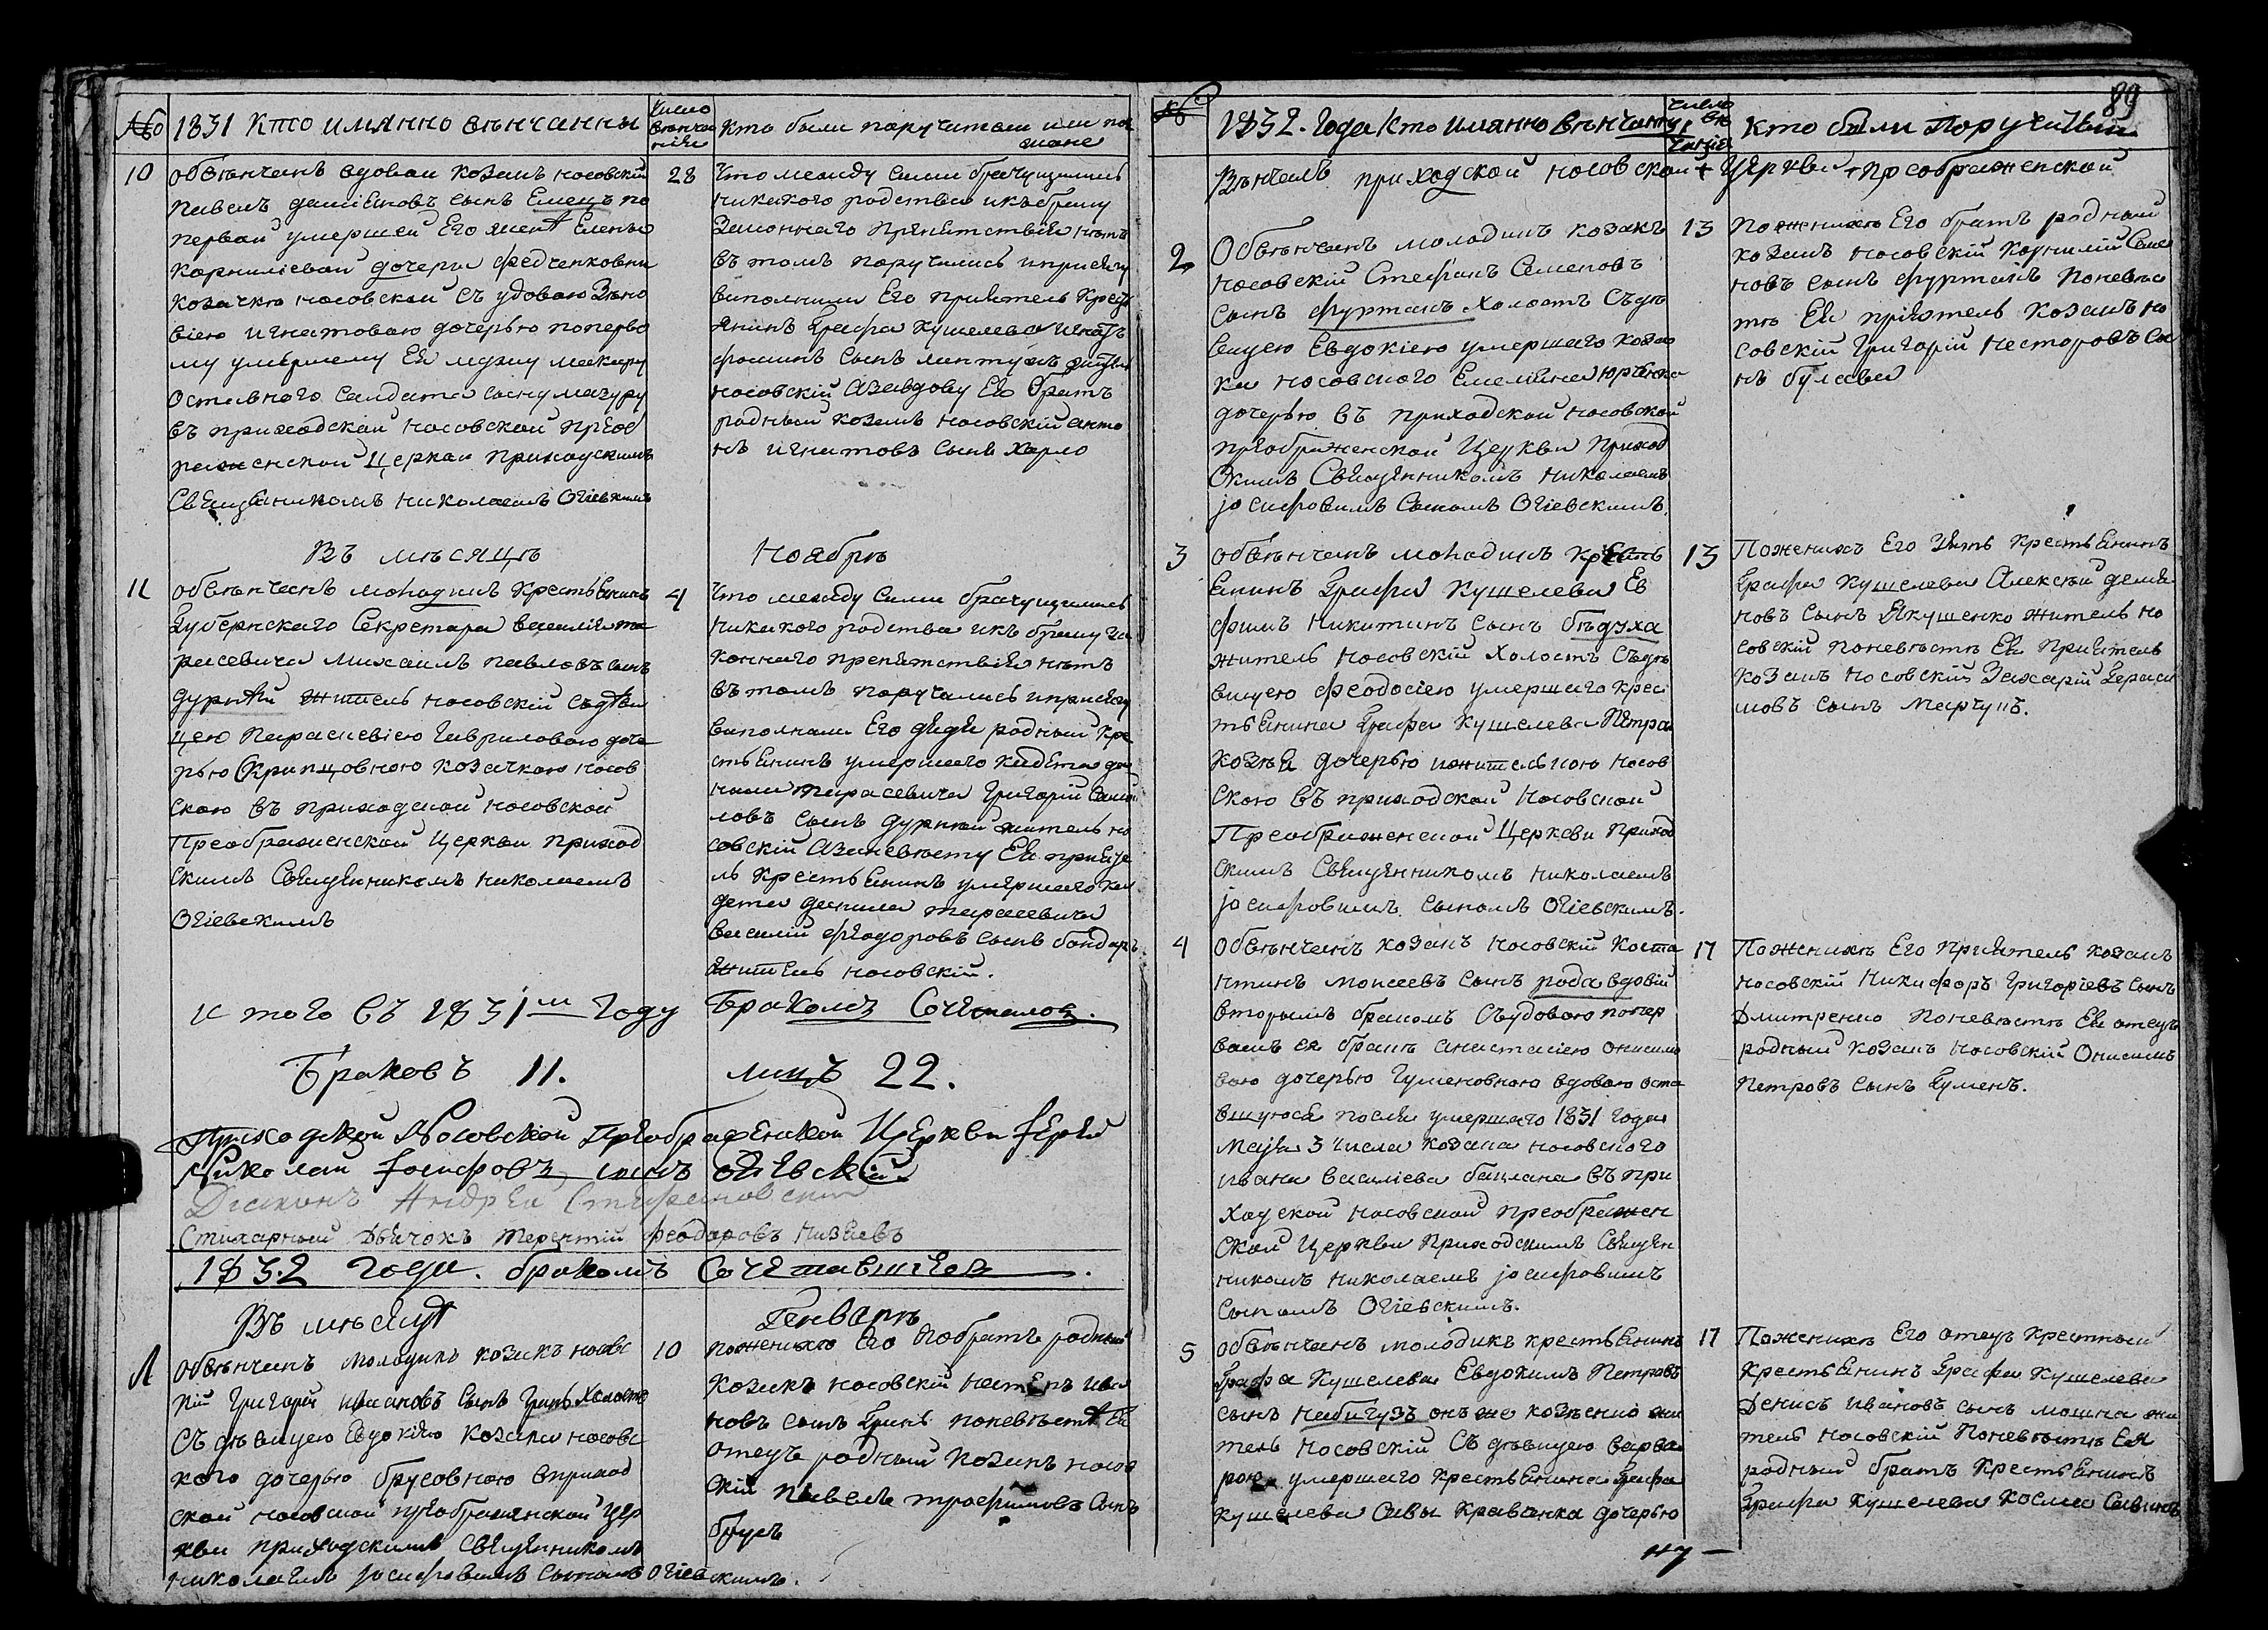 №
1831 Кто имянно вѣнчанны
число вѣнча нія
Кто были поручители или поѣ
жане
10
обвѣнчанъ вдовай козакъ носовскій
28
Павелъ даміановъ сынъ Емецъ по
первой умершей Его женѣ Елены
Корниліевай дочери федченковни
козачкѣ носовской съ удовою Зѣно
віею игнатовою дочерью поперво
му умершему Ея мужу макару
отставного салдата сыну мачуру
въ приходской носовской преоб
раженской Церкви приходскимъ
Священикомъ николаемъ Огіевскимъ
Что между сими брачущимись
никакого родства икъ браку
Законнаго препятствія нѣтъ
въ томъ поручались иприсягу
виполнили Его приятель крест
янинъ Графа кушелева игнатъ
фоминъ сынъ житель
носовскій Азавдову Ея братъ
родный козакъ носовскій анто
нъ игнатовъ сынъ Харло
Въ мѣсяцѣ
Ноябрѣ
11
обвѣнчанъ молодикъ крестьянинъ
4
Губернскаго Секретара василія та
расевича михаилъ павловъ сынъ
дурнѣй житель носовскій съ дѣви
цею Параскевіею Гавриловою доче
рью Крипцовною козачкою носов
скою въ приходской носовской
Преображенской Церкви приход
скимъ Священикомъ николаемъ
Огіевскимъ
Что между сими брачущимись
никакого родства икъ браку за
коннаго препятствія нѣтъ
въ томъ поручались иприсягу
виполнили Его дядя родный кре
стьянинъ умершего кадета да
нила тарасевича Григорій
ловъ сынъ дурный житель но
совскій Азаневѣсту Ея прияте
ль крестьянинъ умершего ка
дета данила тарасевича
василій феодоровъ сынъ бондарь
житель носовскій.
И того въ 1831м Году Бракомъ Сочеталось.
Браковъ 11.
лицъ 22.
Приходской Носовской Преображенской Церкви Іерей
Николай Іосифовъ сынъ Огіевскій
Діаконъ Андрей Стефановскій
Стихарный Дьячокъ терентій феодоровъ низіевъ
1832 года. бракомъ Сочетавшіеся.
Въ мѣсяцѣ
Генварѣ
1
Обвѣнчанъ молодикъ козакъ носовс
10
кій григорій ивановъ сынъ Гринь Холостъ
съ дѣвицею Евдокіею козака носовс
кого дочерью брусовною вприход
ской носовской преображенской цер
кви приходскимъ священикомъ
николаемъ іосифовимъ сыномъ огіевскимъ.
поженихѣ его побратъ родный
козакъ носовскій нестеръ ива
новъ сынъ Гринь поневѣстѣ Ея
отецъ родный козакъ носов
скій павелъ трофимовъ сынъ
брусъ
89
№
1832. Года Кто имянно вѣнчанну,
число вѣ
чанія
Кто были Поручители
Вѣнчалъ приходской носовской Церкви Преображенской
2
Обвѣнчанъ молодикъ козакъ
13
носовскій Стефанъ Семеновъ
сынъ фуртакъ Холостъ Съ дѣ
вицею Евдокіею умершаго коза
ка носовского Емеліяна Юрченка
дочерью въ приходской носовской
преображенской Церкви приход
скимъ Священникомъ николаемъ
іосифовимъ сыномъ Огіевскимъ.
Поженихѣ Его братъ родный
козакъ носовскій Корнилій Семе
новъ сынъ фуртакъ поневѣс
тѣ Ея пріятель козакъ но
совскій Григорій Несторовъ сы
нъ булава
3
обвѣнчанъ молодикъ крест
13
янинъ Графа Кушелева Ев
фимъ Никитинъ сынъ бѣдуха
житель носовскій холостъ Съ дѣ
вицею феодосіею умершаго крес
тьянина Графа кушелева петра
козѣя дочерью ижителькою носов
скою въ приходской носовской
Преображенской Церкви приход
скимъ Священникомъ николаемъ
іосифовимъ сыномъ Огіевскимъ.
Поженихѣ Его зять крестьянинъ
Графа кушелева Алексѣй демя
новъ сынъ Якушенко житель но
совскій поневѣстѣ Ея приятель
козакъ носовскій Захарій Гераси
мовъ сынъ Марчукъ.
4
Обвѣнчанъ козакъ носовскій Коста
17
нтинъ моисеевъ сынъ рода вдовій
вторымъ бракомъ Съ удовою попер
вомъ ея бракѣ анастасіею онисимо
вою дочерью Гуменовною вдовою оста
вшуюся послѣ умершаго 1831 года
маія 3 числа козака носовского
ивана василіева бацмана въ при
ходской носовской преображен
ской Церкви приходскимъ Священ
никомъ николаемъ іосифовимъ
Сыномъ Огіевскимъ.
Поженихѣ Его приятель козакъ
носовскій Никифоръ Григоріевъ сынъ
Дмитренко Поневѣстѣ Ея отецъ
родный козакъ носовскій Онисимъ
Петровъ сынъ Гуменъ.
5
обвѣнчанъ молодикъ крестьянинъ
17
Графа кушелева Евдокимъ Петровъ
сынъ набигузъ онъ же козѣенко жи
тель носовскій Съ дѣвицею варва
рою умершаго крестьянина Графа
кушелева Савы Кравченка дочерью
Поженихѣ Его отецъ крестный
крестьянинъ Графа кушелева
Денисъ ивановъ сынъ мошна жи
тель носовскій Поневѣстѣ Ея
родный братъ крестьянинъ
Графа кушелева косма Савинъ